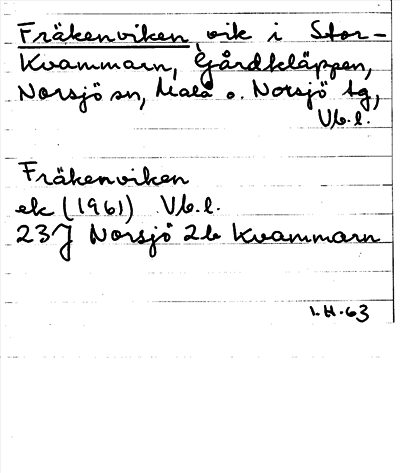 Fräkenviken, vik i Stor-
Kvammarn, Gårdkläppen,
Norsjö sn, Malå o. Norsjö tg,
Vb.l.
Fräkenviken
ek (1961) Vb.l.
23J Norsjö 2b Kvammarn
I.H.63